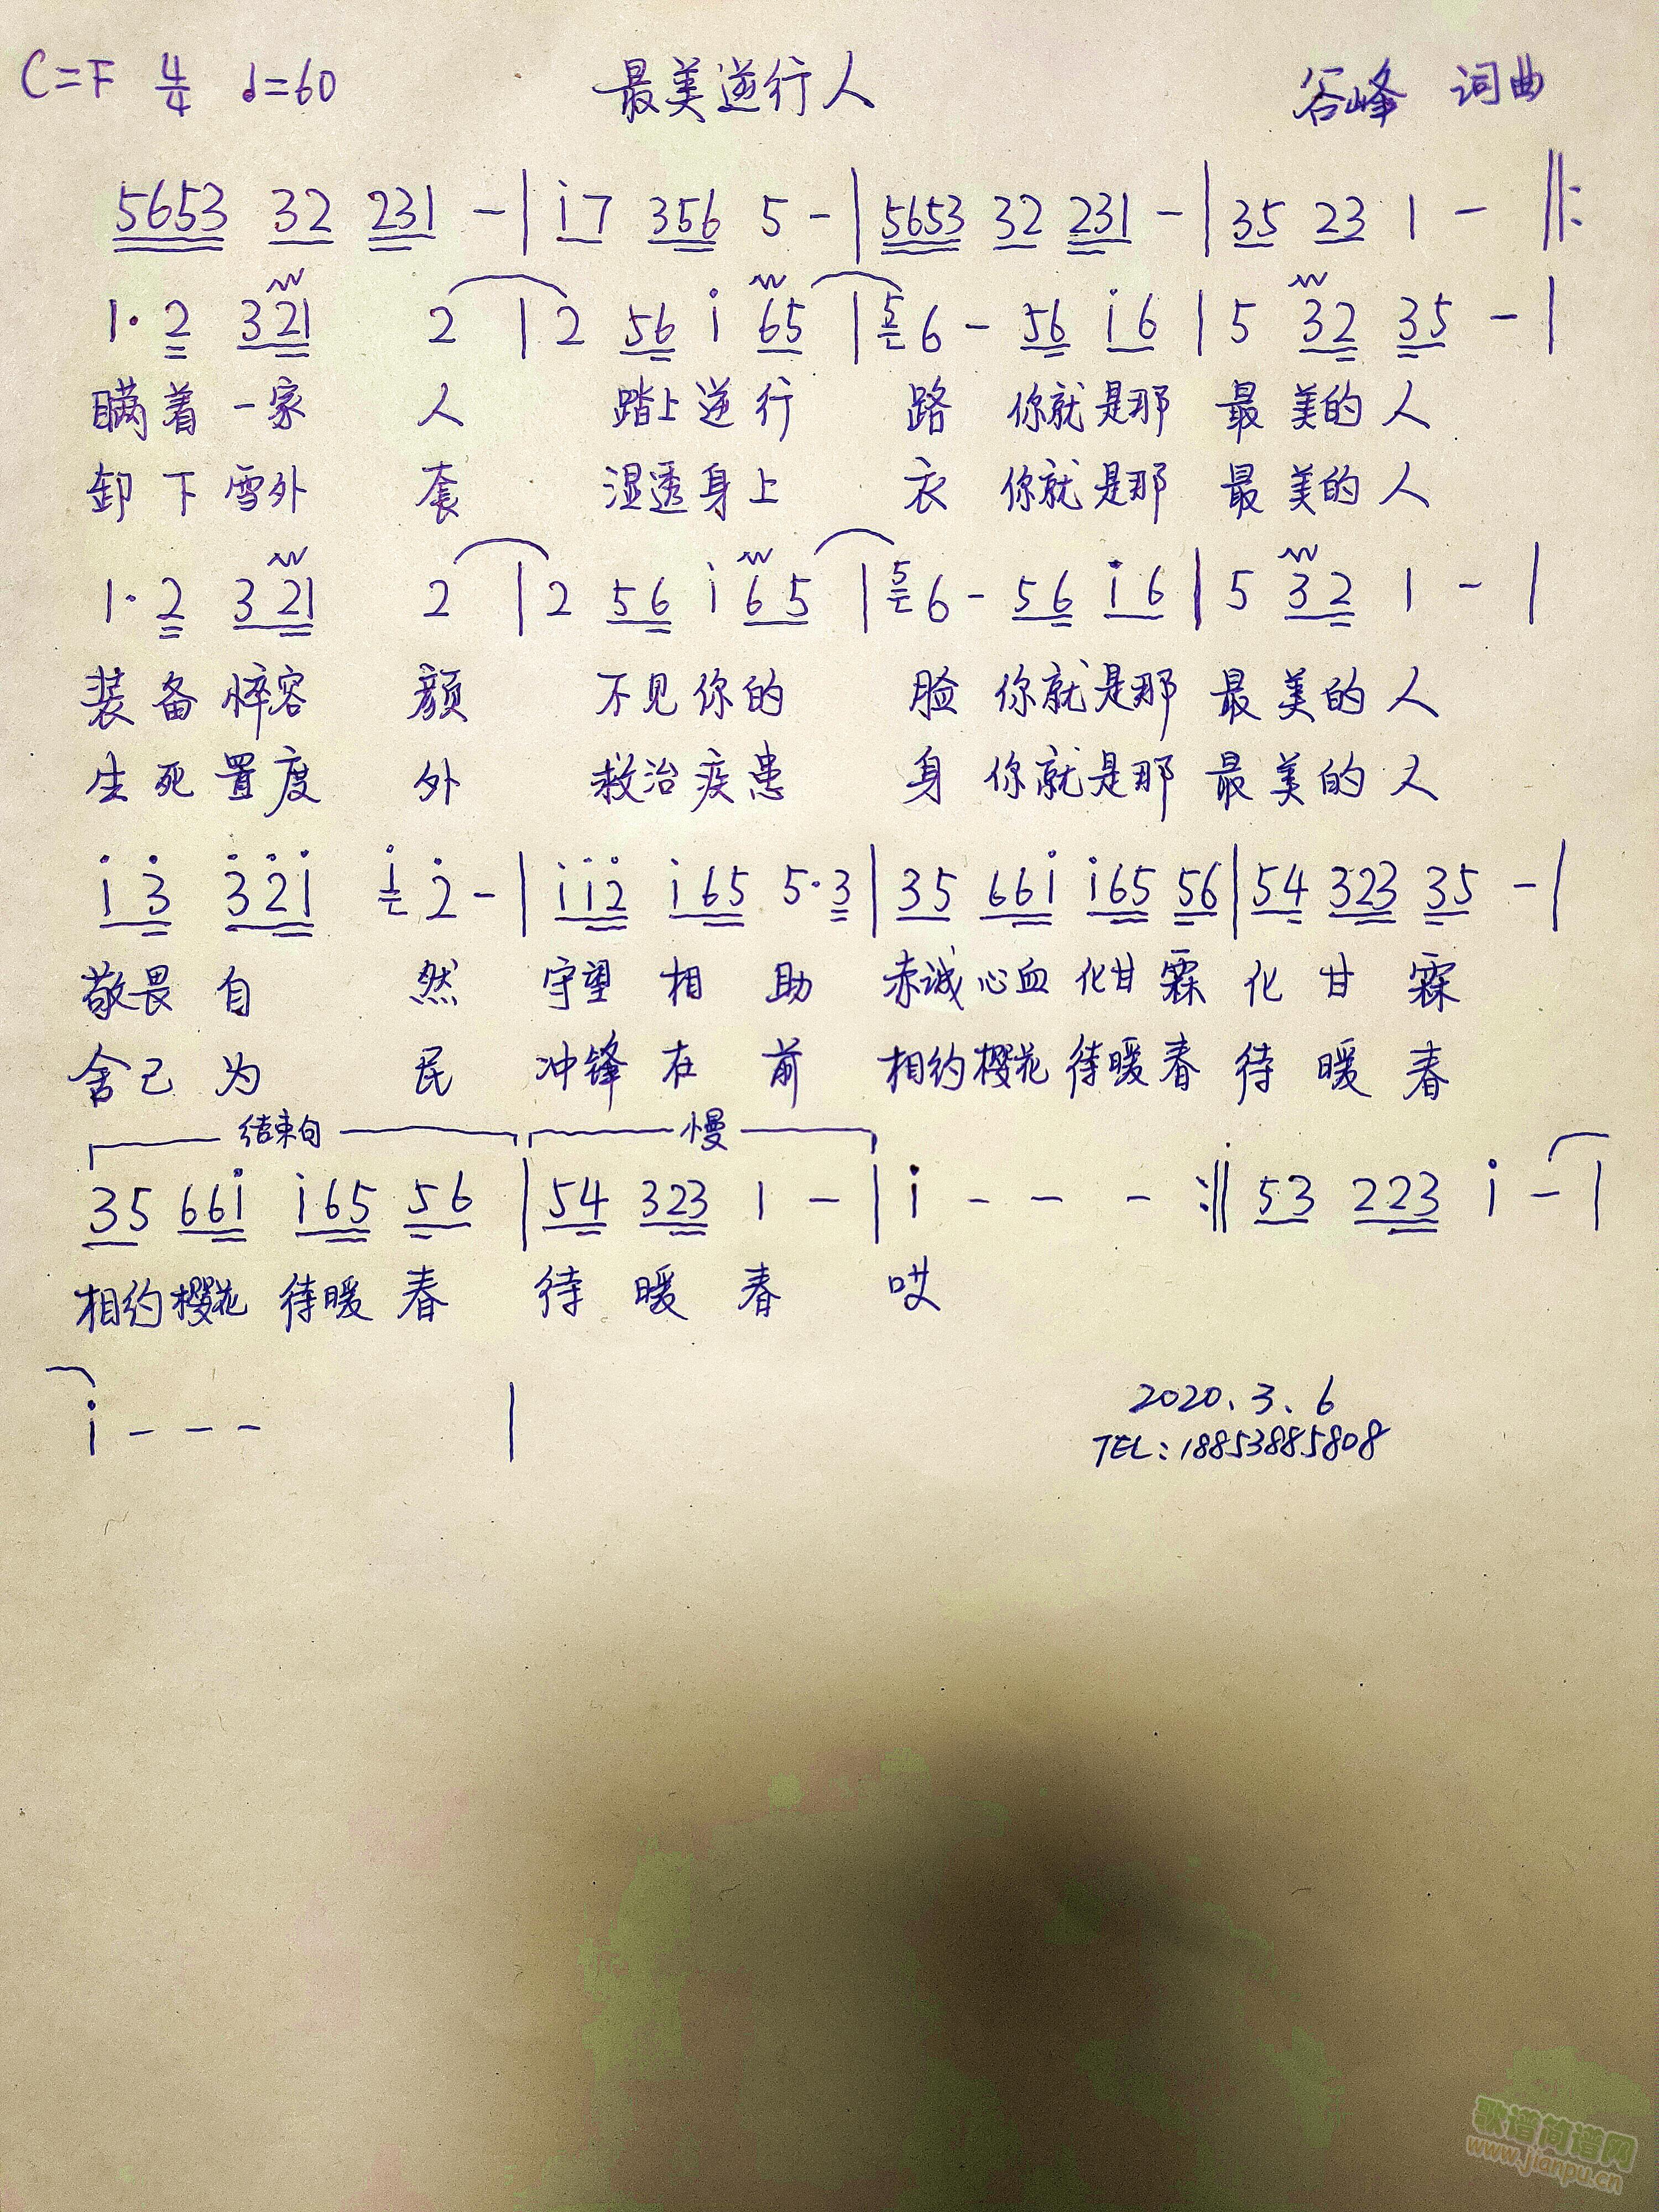 C=F 4/4 ♩=60 最美逆行人 谷峰 词曲
5653 32 231 - | i7 356 5 - | 5653 32 231 - | 35 23 1 - ‖:
1· 2 321 2 | 2 56 i 65 | 5 6 - 56 i6 | 5 32 35 - |
瞒着一家 人 踏上逆行 路 你就是那 最美的人
卸下雪外 套 湿透身上 衣 你就是那 最美的人
1· 2 321 2 | 2 56 i 65 | 5 6 - 56 i6 | 5 32 1 - |
装备悴容 颜 不见你的 脸 你就是那 最美的人
生死置度 外 救治疾患 身 你就是那 最美的人
i3̇ 3̇2̇i i 2̇ - | ii2̇ i65 5·3 | 35 66i i65 56 | 54 323 35 - |
敬畏自 然 守望相助 赤诚心血 化甘霖 化甘霖
舍己为 民 冲锋在前 相约樱花 待暖春 待暖春
结束句 慢
35 66i i65 56 | 54 323 1 - | i - - - :‖ 53 223 i - |
相约樱花 待暖春 待暖春 哎
i - - - |
2020、3、6
TEL:18853885808
歌谱简谱网
www.jianpu.cn